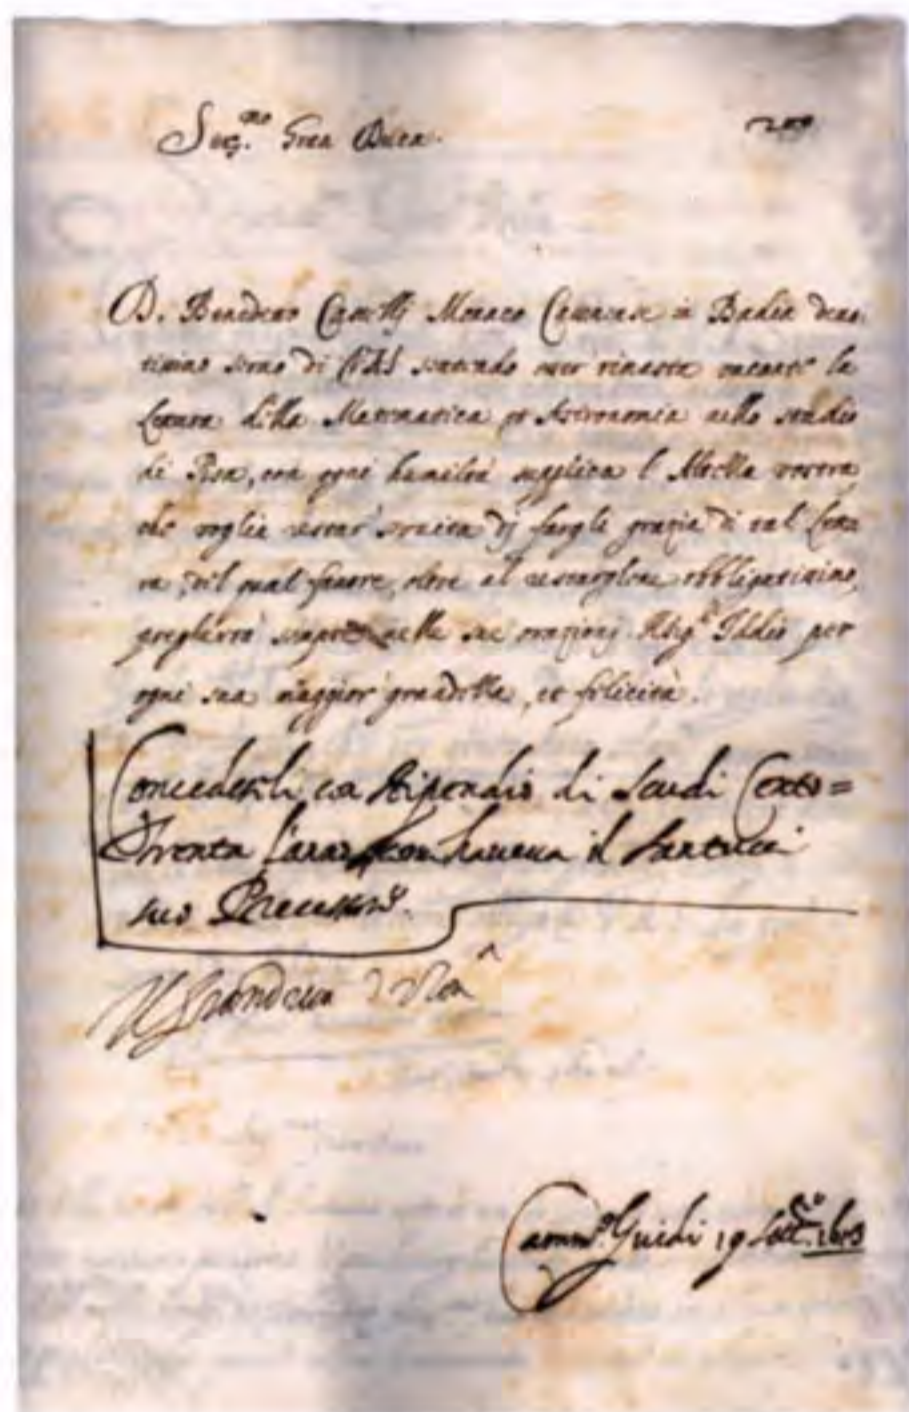 Ser.mo Gran Duca.
D. Benedetto Castelli Monaco Casinense in Badia devo
tissimo servo di V.A.S. sentendo esser rimasta vacante la
Lettura della Matematica et Astronomia nello studio
di Pisa, con ogni humiltà supplica l'Altezza vostra,
che voglia restar servita di fargli grazia di tal Lettu
ra, del qual favore, oltre al restargliene obbligatissimo,
pregherrà sempre nelle sue orazioni Iddio per
ogni sua maggior grandezza, et felicità.
Concedeseli con stipendio di scudi Cento=
trenta l'anno, che haveva il Santucci
suo Precessore.
Camm.o Guidi 19 Sett.re 1613